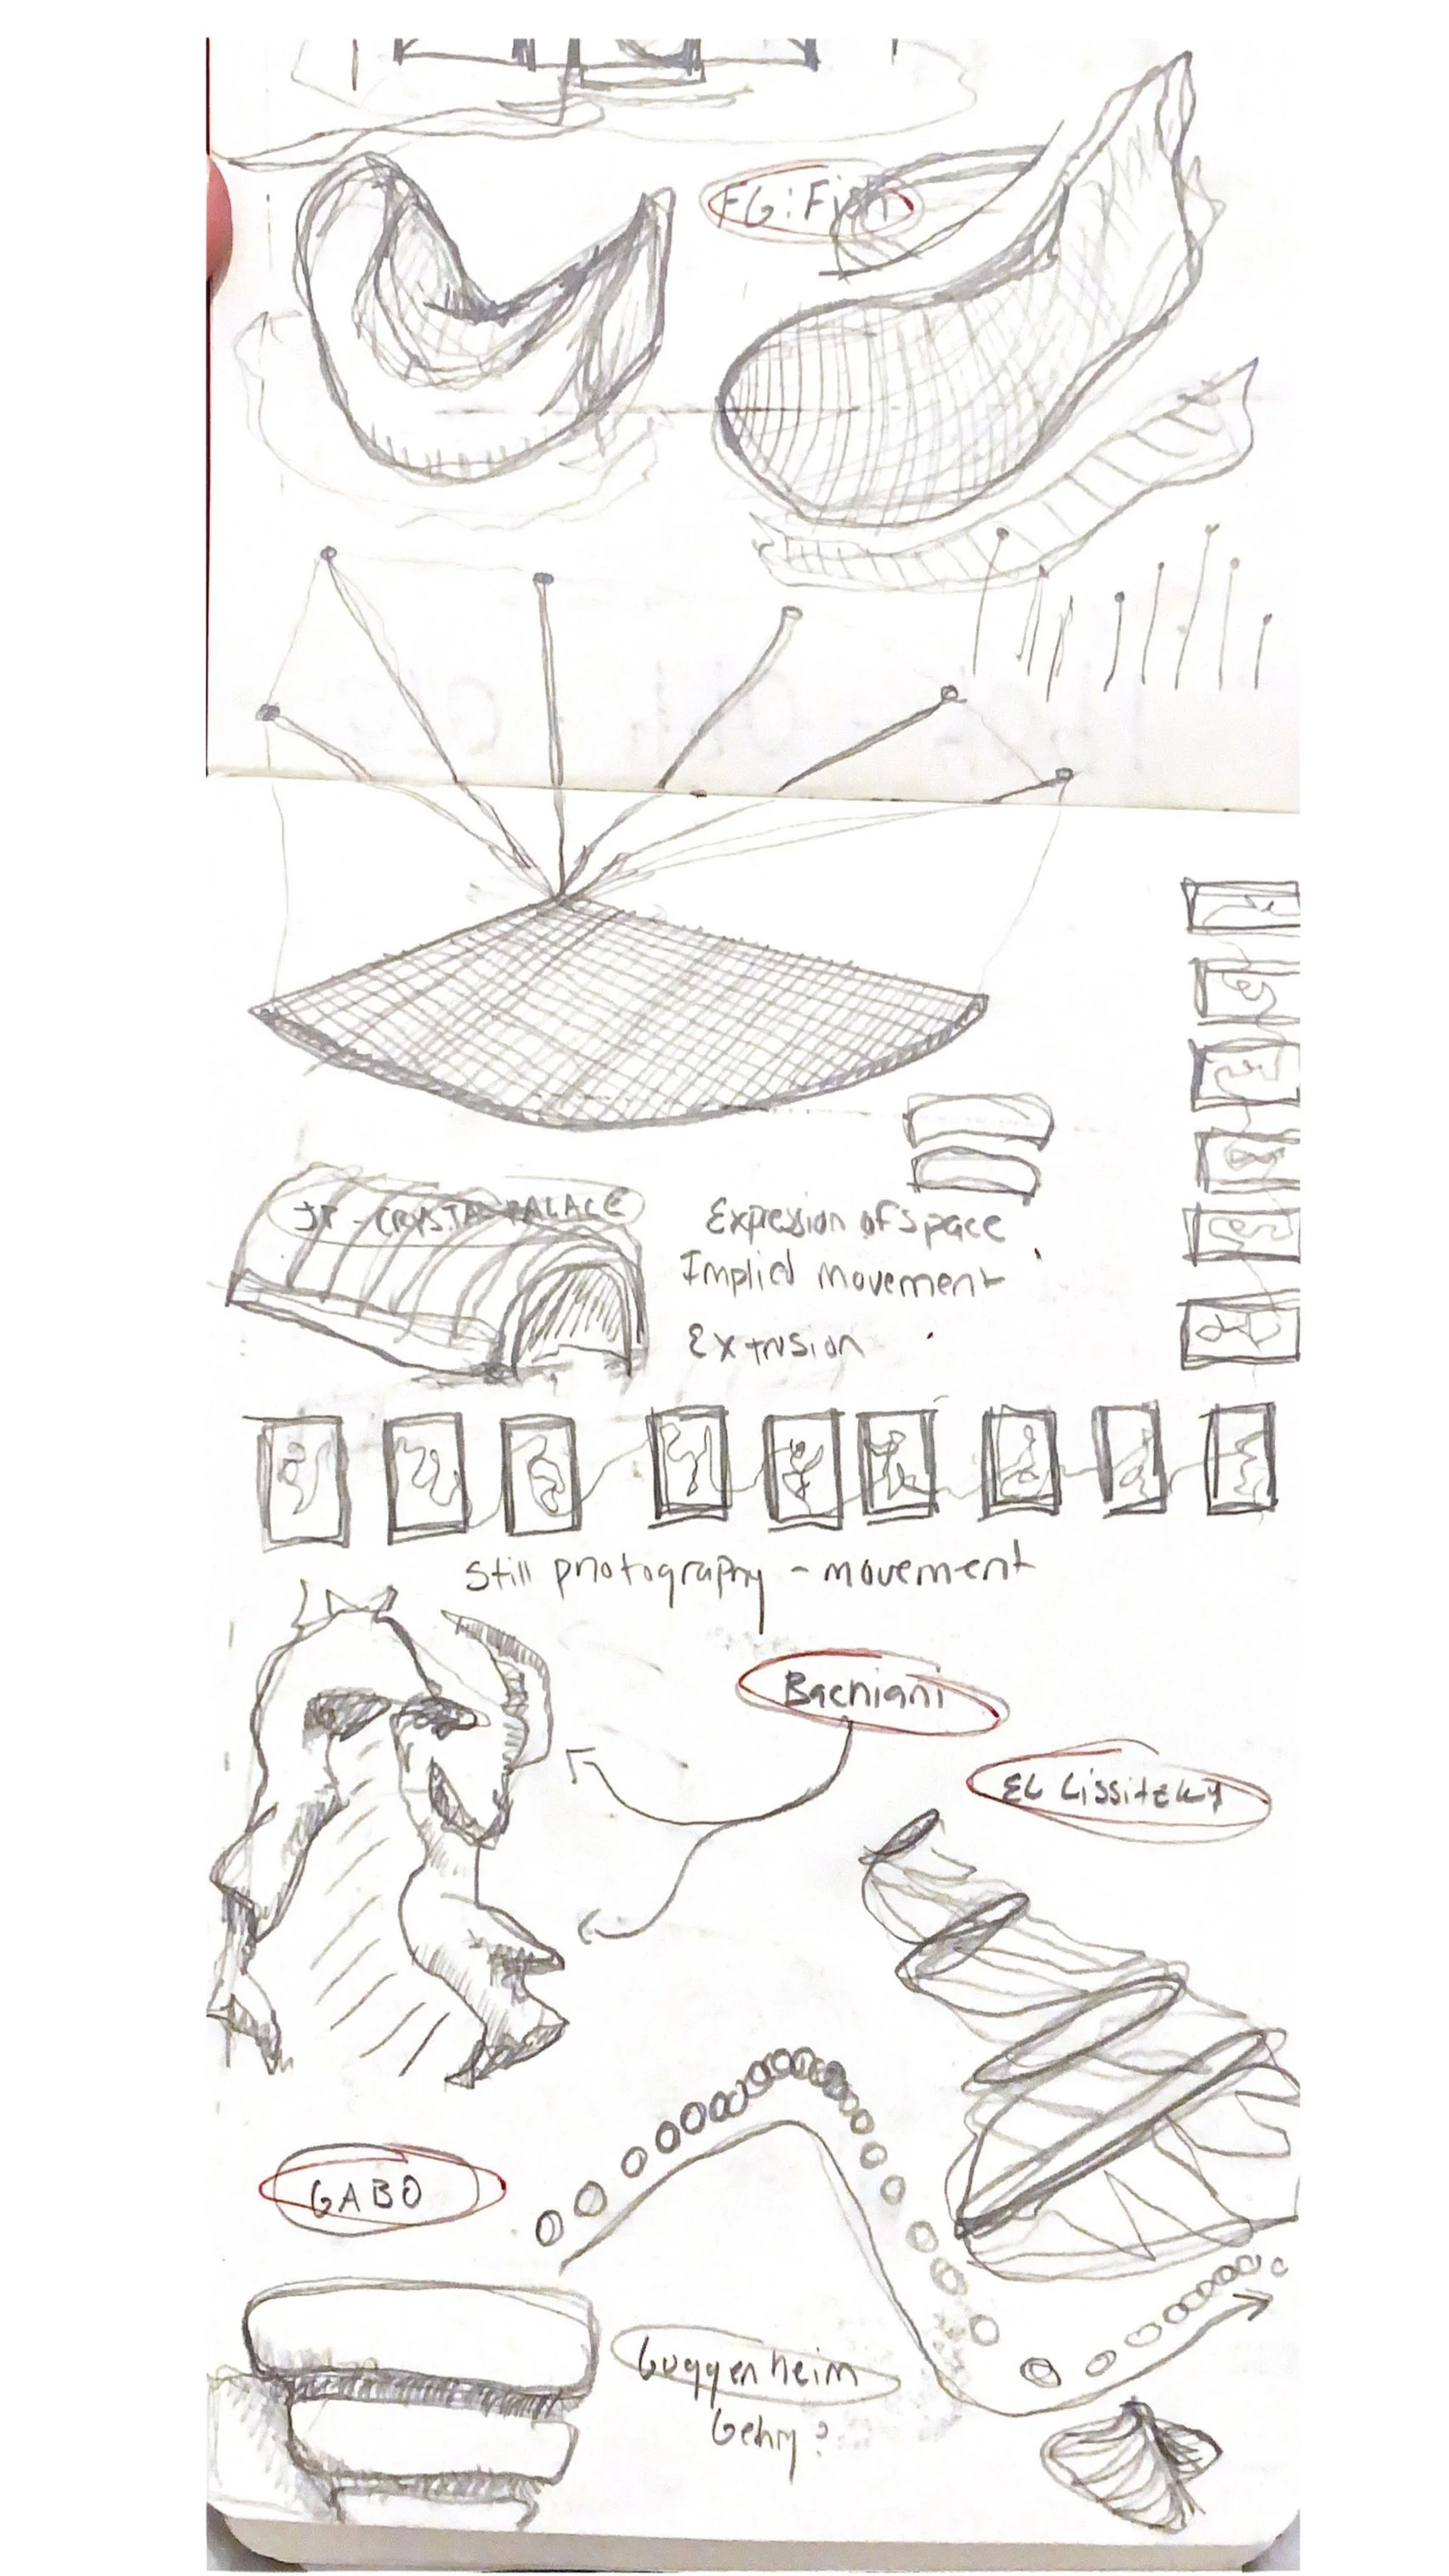 FG: Fish
JP - CRYSTAL PALACE
Expression of space
Implied movement
Extrusion
Still photography - movement
Bacniani
EL Lissitzky
GABO
Guggenheim
Gehry?